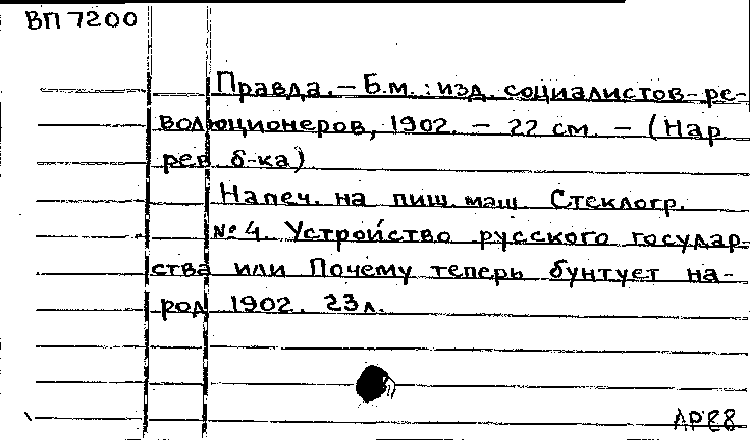 ВП 7200
Правда. – Б.м. : изд. социалистов-ре-
волюционеров, 1902. – 22 см. – (Нар
рев б-ка)
Напеч. на пиш. маш. Стеклогр.
№ 4. Устройство русского государ-
ства или Почему теперь бунтует на-
род 1902. 23 л.
АР88